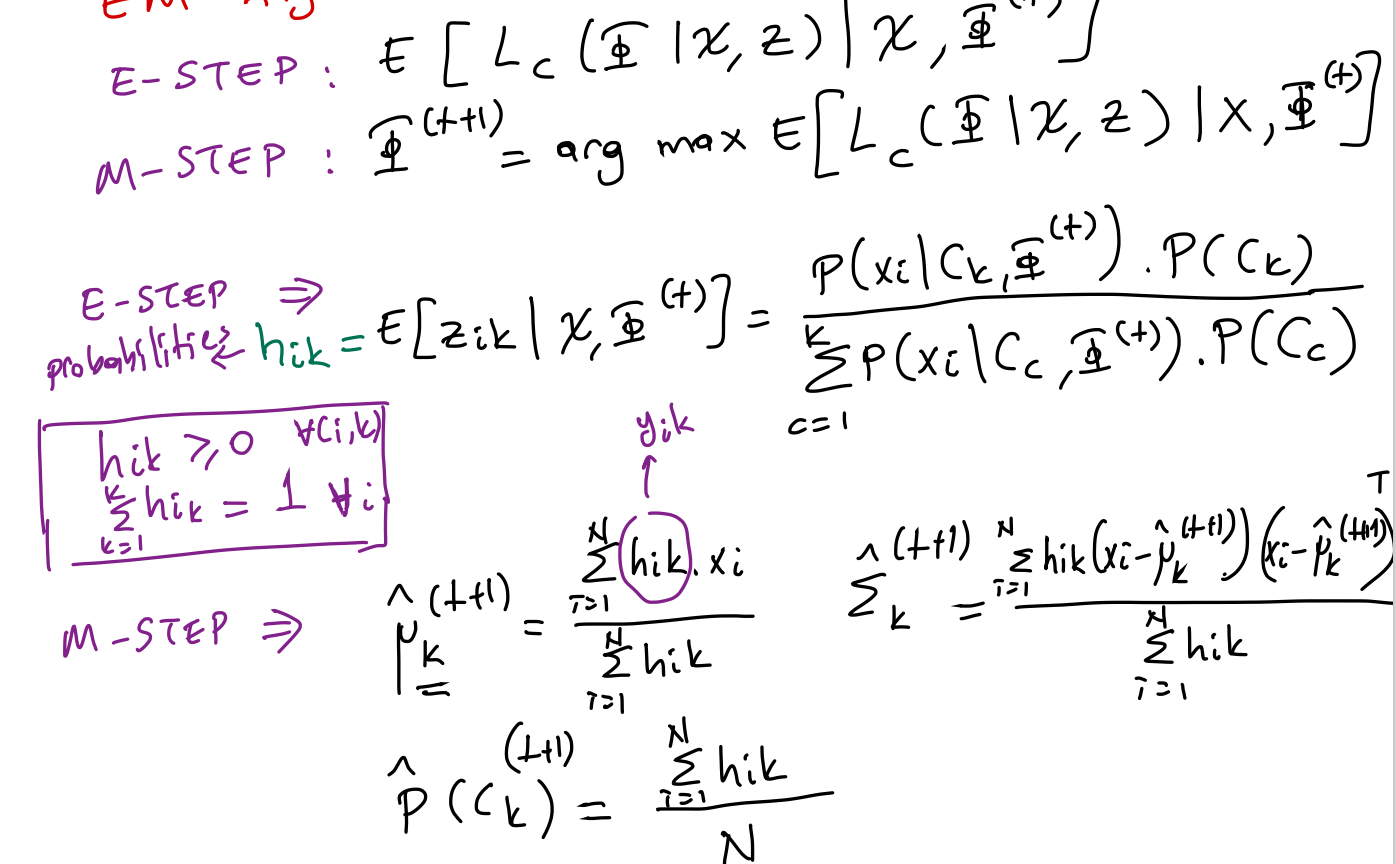 EM
E-STEP : E [ L_c (Φ | X, z) | X, Φ^(t) ]
M-STEP : Φ^(t+1) = arg max E [ L_c (Φ | X, z) | X, Φ^(t) ]
E-STEP ⇒
probabilities ← h_ik = E [ z_ik | X, Φ^(t) ] = P(x_i | C_k, Φ^(t)) . P(C_k) / Σ_{c=1}^{K} P(x_i | C_c, Φ^(t)) . P(C_c)
h_ik ≥ 0 ∀(i,k)
Σ_{k=1}^{K} h_ik = 1 ∀i
y_ik
M-STEP ⇒ μ̂_k^(t+1) = Σ_{i=1}^{N} h_ik . x_i / Σ_{i=1}^{N} h_ik
Σ̂_k^(t+1) = Σ_{i=1}^{N} h_ik (x_i - μ̂_k^(t+1)) (x_i - μ̂_k^(t+1))^T / Σ_{i=1}^{N} h_ik
P̂^(t+1) (C_k) = Σ_{i=1}^{N} h_ik / N